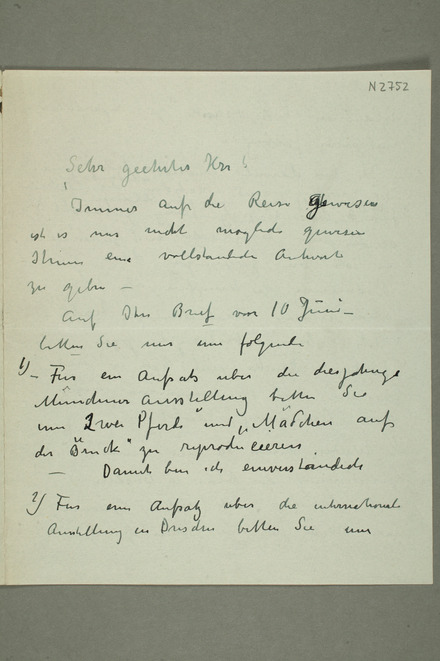 N2752
Sehr geehrter Herr!
Immer auf die Reise gewesen
ist es mir nicht möglich gewesen
Ihnen eine vollständide Antwort
zu geben –
Auf Ihr Brief von 10 Juni –
bitten Sie mir um folgende
1) – Für ein Aufsatz über die diesjahrige
Münchner Ausstellung bitten Sie
um 2 zwei Pferde" und „Mädchen auf
der Brück" zu reproducieren
– Damit bin ich einverstandeds
2) Für eine Aufsatz über die internationale
Ausstellung in Dresden bitten Sie um